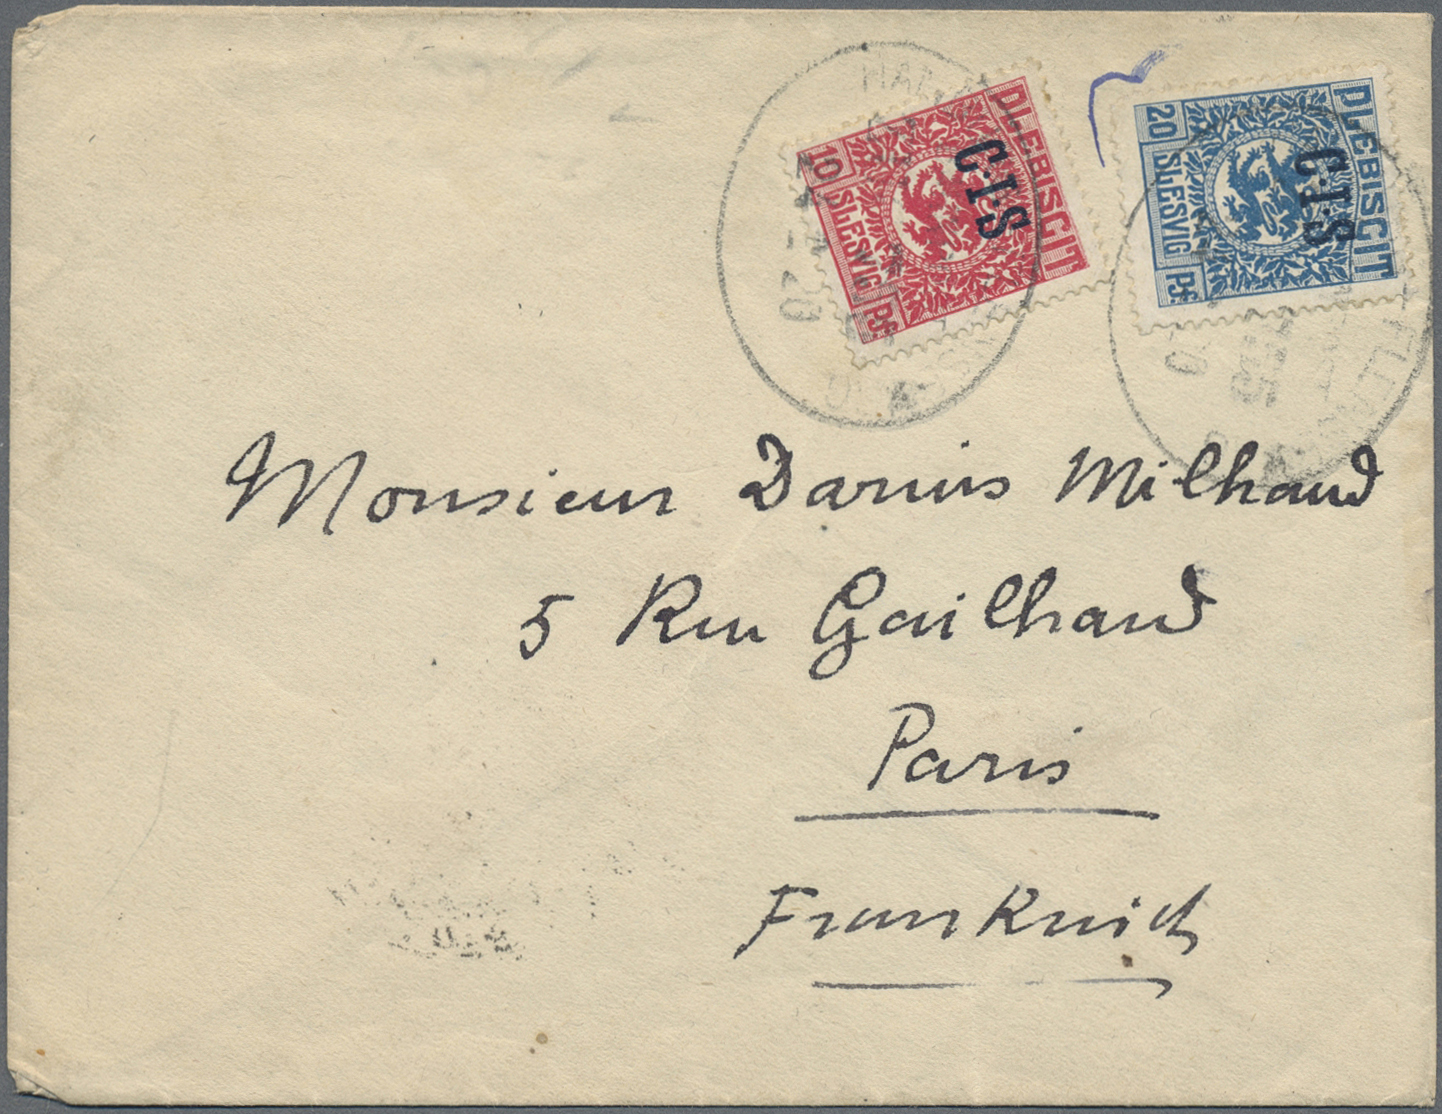 PLEBISCIT
C·I·S
10 SLESVIG PF.
PLEBISCIT
C·I·S
20 SLESVIG PF.
20
Monsieur Darius Milhaud
5 Rue Gailhard
Paris
Frankreich